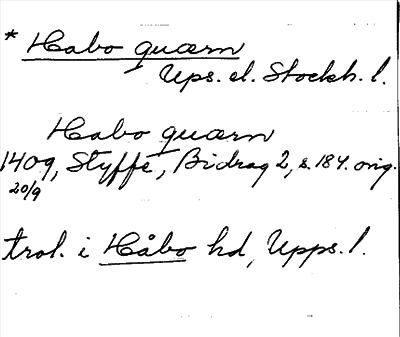 * Habo quærn
Ups. el. Stockh. l.
Habo quærn
1409, Styffe, Bidrag 2, s. 184. orig.
20/9
trol. i Håbo hd, Upps. l.